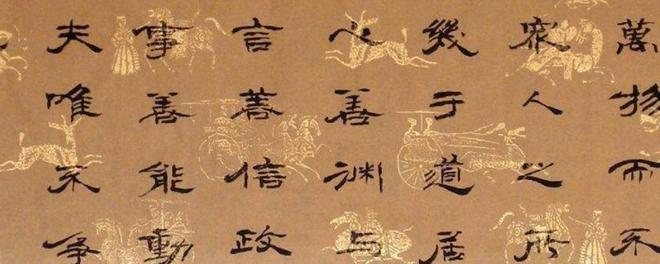 萬物而不
衆人之所
幾于道居
心善渊与
言善信政
事善能動
夫唯不争